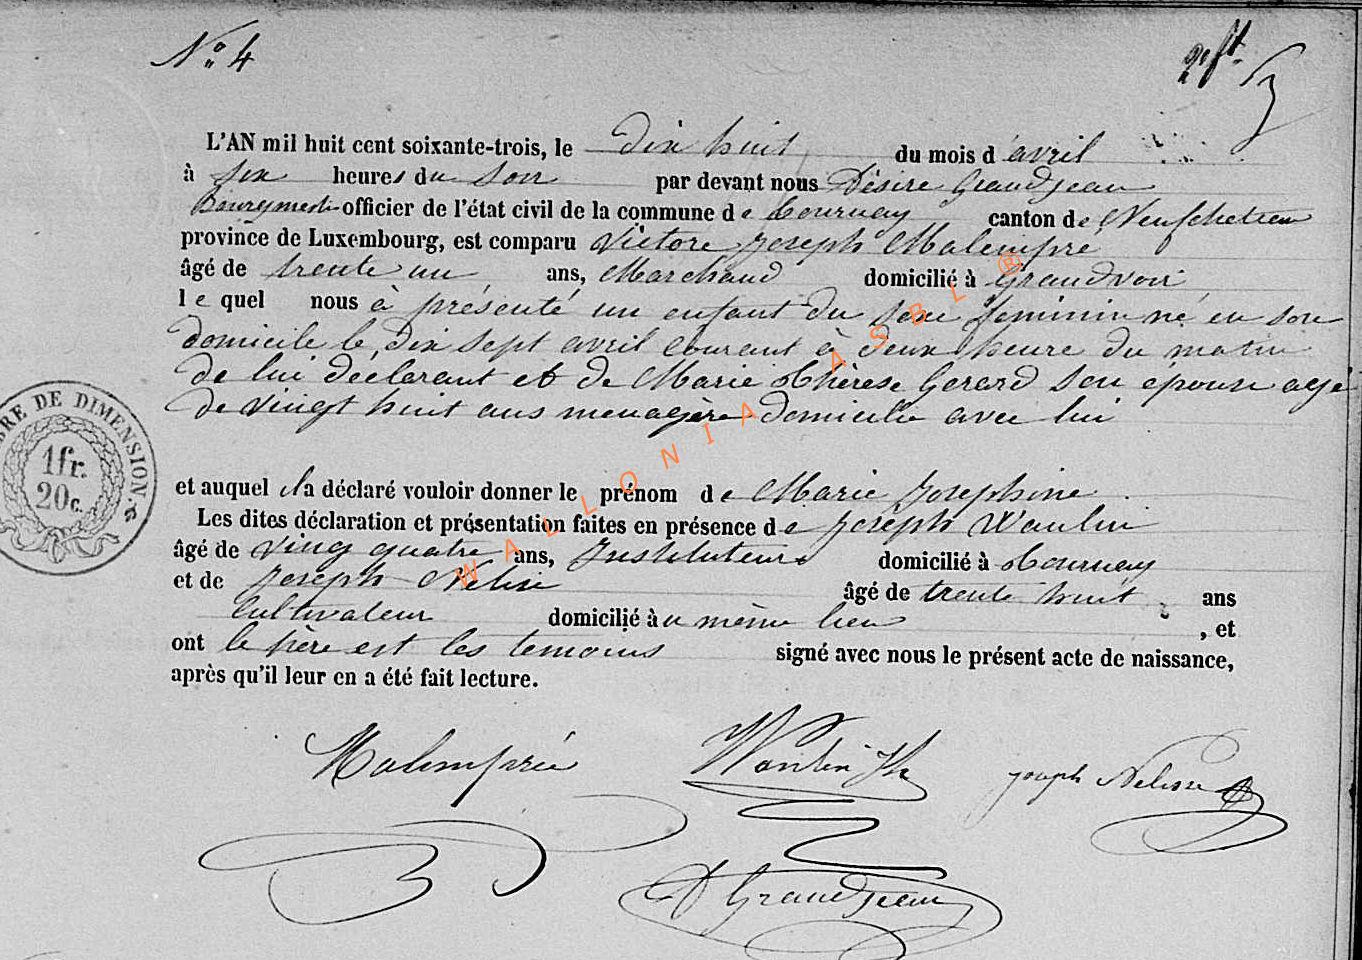 N° 4
L'AN mil huit cent soixante-trois, le Dix huit du mois d'avril
à six heures du Soir par devant nous Désiré Grandjean
Bourgmestre officier de l'état civil de la commune de Tournay canton de Neufchateau
province de Luxembourg, est comparu Victore Joseph Malempré
âgé de trente un ans, Marchand domicilié à Grandvoir
le quel nous à présenté un enfant du sexe feminin né en son
domicile le dix Sept avril courant à deux heure du matin
de lui declarant et de Marie Thérèse Gerard Son épouse agé
de vingt huit ans menagère domicilié avec lui
et auquel il a déclaré vouloir donner le prénom de Marie Josephine
Les dites déclaration et présentation faites en présence de Joseph Wautin
âgé de Ving quatre ans, Instituteur domicilié à Tournay
et de Joseph Nelisse âgé de trente huit ans
Cultivateur domicilié au même lieu , et
ont le père est les temoins signé avec nous le présent acte de naissance,
après qu'il leur en a été fait lecture.
Malempré
Wautin Jh
joseph Nelisse
D Grandjean
TIMBRE DE DIMENSION
1 fr.
20 c.
WALLONIA ASBL ®